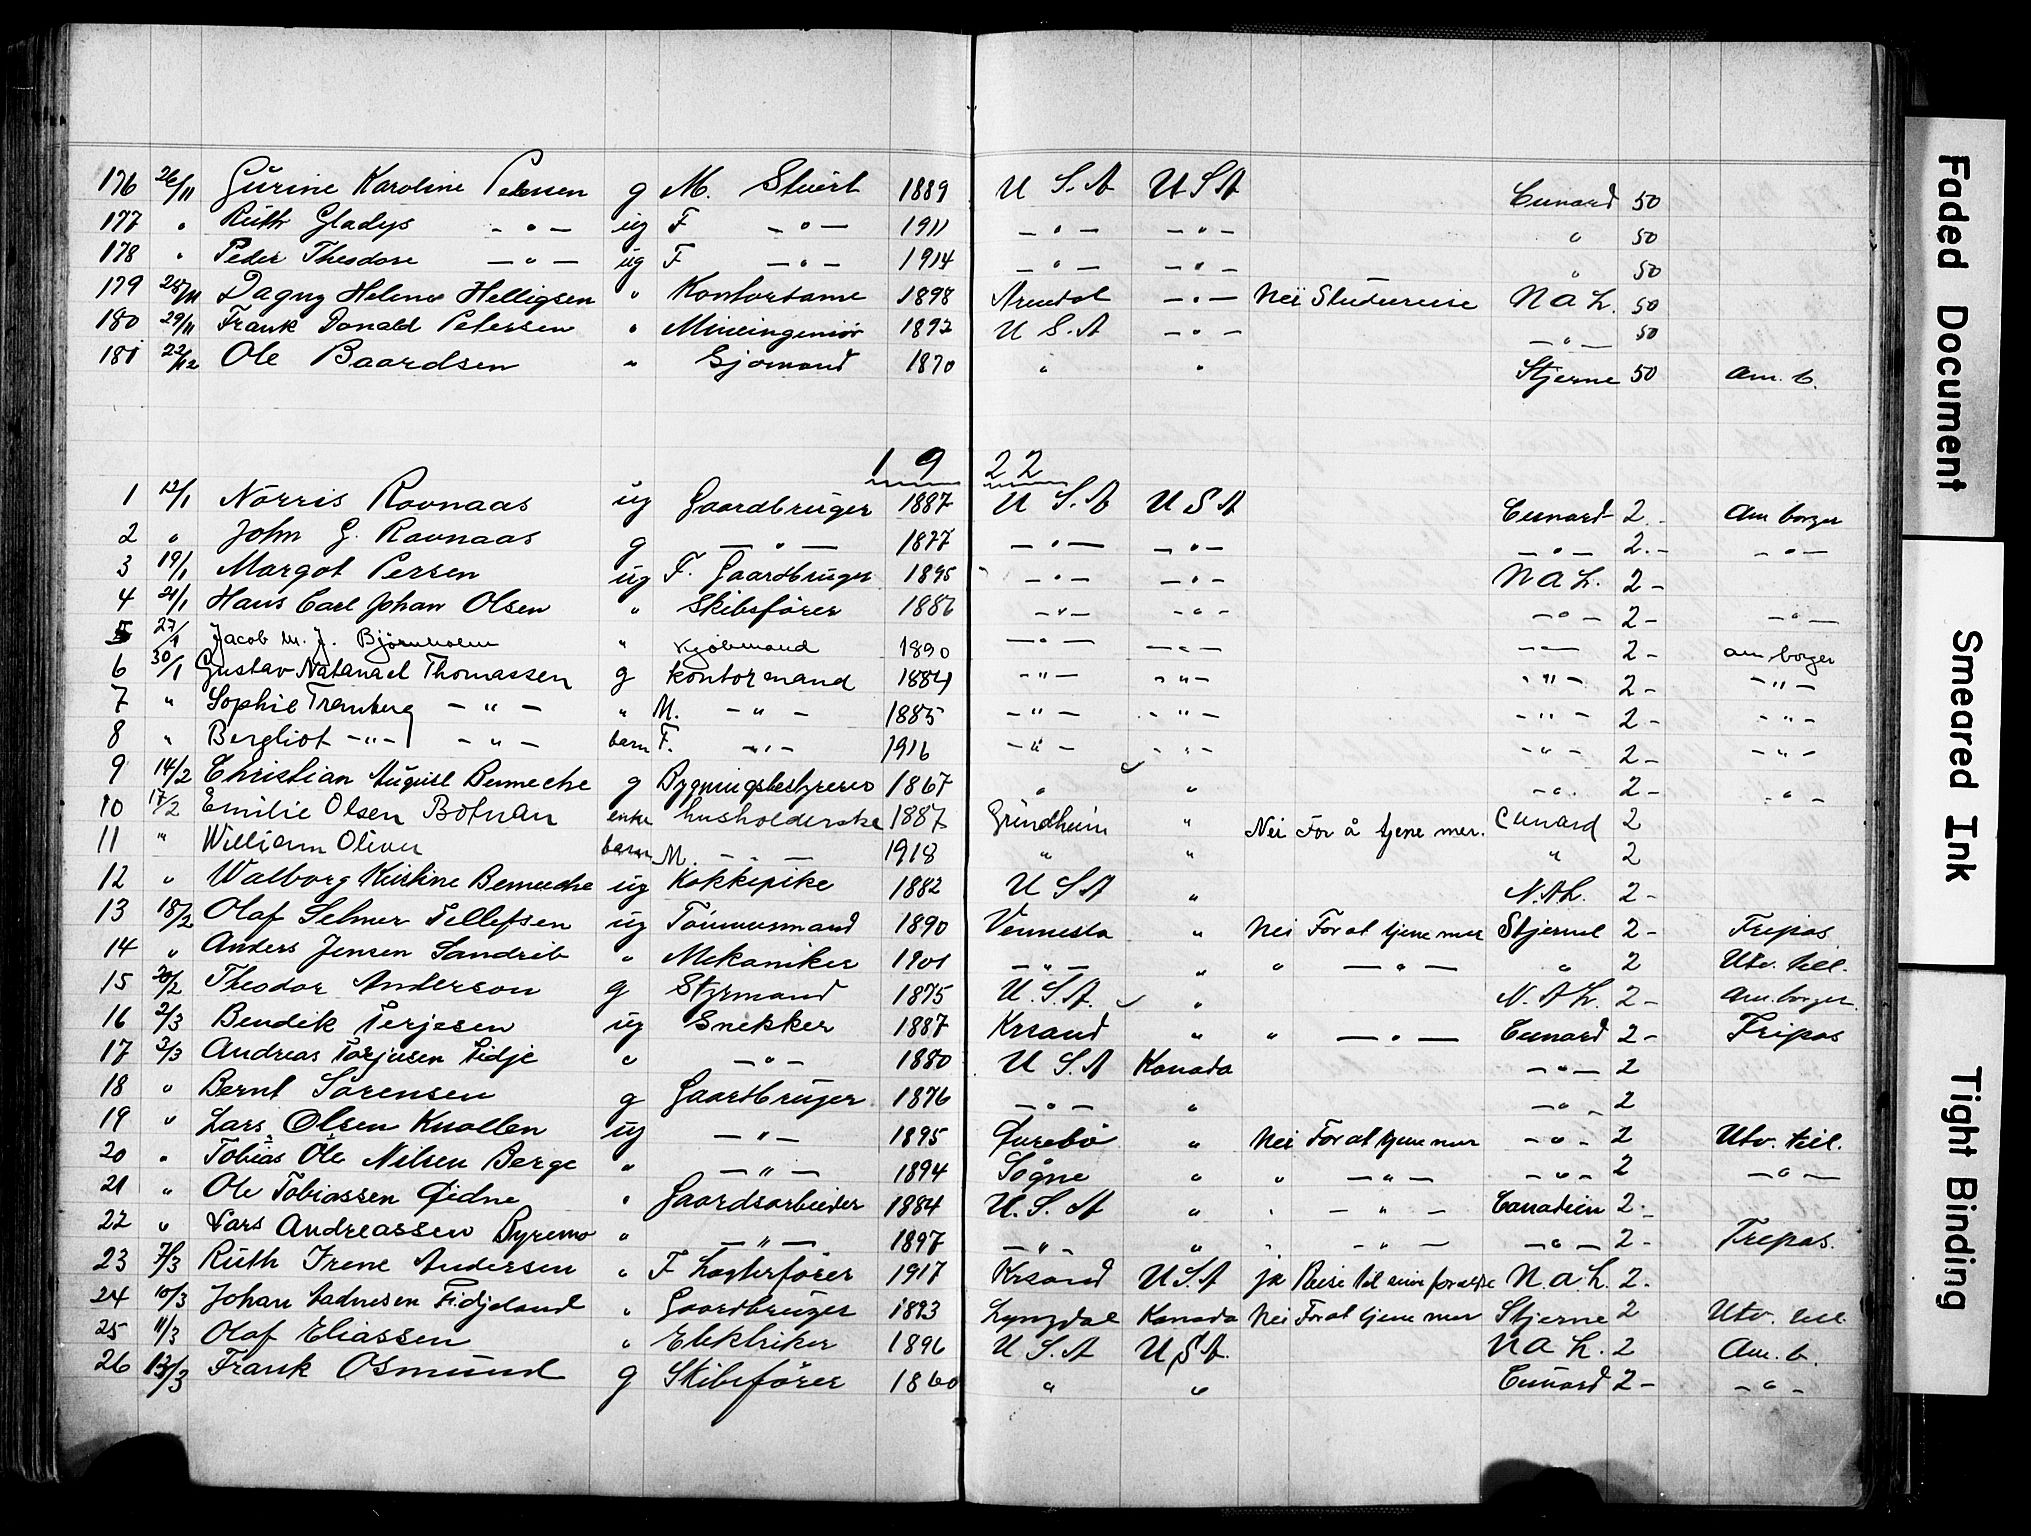 176 26/11 Gurine Karoline Petersen g M. Stuert 1889 U S. A U S A Cunard 50
177 " Ruth Gladys — " — ug F — " — 1911 — " — — " — " 50
178 " Peder Theodore — " — ug F — " — 1914 — " — — " — " 50
179 28/11 Dagny Helene Helligsen " Kontordame 1898 Arendal — " — Nei Studiereise N A L. 50
180 29/11 Frank Donald Petersen " Mineingeniør 1892 U S. A — " — — " — 50
181 22/12 Ole Baardsen " Sjømand 1870 " " Stjerne 50 Am. b.
19 22
1 12/1 Norris Rovnaas ug Gaardbruger 1887 U S. A U S A Cunard 2.- Am borger
2 " John G. Ravnaas g — " — 1877 — " — — " — — " — 2.- — " —
3 19/1 Margot Persen ug F. Gaardbruger 1895 — " — — " — N A L. 2-
4 21/1 Hans Carl Johan Olsen " Skibsfører 1886 — " — — " — — " — 2- — " —
5 27/1 Jacob M. J. Bjørnholm " Kjøbmand 1890 — " — — " — — " — 2- am borger
6 30/1 Gustav Natanael Thomassen g Kontormand 1884 — " — — " — — " — 2- — " —
7 " Sophie Tranberg — " — " M. — " — 1885 — " — — " — — " — 2- — " —
8 " Bergliot — " — — " — barn F. — " — 1916 — " — — " — — " — 2- — " —
9 14/2 Christian August Benneche g Bygningsbestyrer 1867 " " — " — 2- — " —
10 17/2 Emilie Olsen Botnan enke husholderske 1887 Grindheim " Nei For å tjene mer. Cunard 2
11 " William Oliver barn M. — " — 1918 " " " 2
12 " Walborg Kirstine Benneche ug Kokkepike 1882 U S A " N. A L. 2-
13 18/2 Olaf Selmer Tellefsen ug Tømmermand 1890 Vennesla " Nei For at tjene mer Stjerne 2- Fripas
14 " Anders Jensen Sandrib " Mekaniker 1901 — " — " " — " — " 2 Utv. till.
15 20/2 Theodor Anderson g Styrmand 1875 U. S. A. " N. A L. 2- Am. borger
16 2/3 Bendik Terjesen ug Snekker 1887 Krsand " " — " — Cunard 2- Fripas
17 3/3 Andreas Torjusen Fidje " — " — 1880 U S. A Kanada — " — 2
18 " Bernt Sørensen g Gaardbruger 1876 — " — " — " — 2
19 " Lars Olsen Knollen ug — " — 1895 Øvrebø " Nei For at tjene mer — " — 2 Utv. till.
20 " Tobias Ole Nilsen Berge " — " — 1894 Søgne " " — " — — " — 2 — " —
21 " Ole Tobiassen Øidne " Gaardsarbeider 1884 U. S. A " " — " — Canadien 2-
22 " Lars Andreassen Byremo " — " — 1897 — " — " " — " — — " — 2- Fripas.
23 7/3 Ruth Irene Andersen " F Lagterfører 1917 Krsand U S A ja Reise til sine foræld N. A. L. 2-
24 10/3 Johan Fidjeland " Gaardbruger 1893 Lyngdal Kanada Nei For at tjene mer Stjerne 2 Utv. till
25 11/3 Olaf Eliassen " Elektriker 1896 U S. A U S A. N A L. 2 Am. b.
26 13/3 Frank Osmund g Skibsfører 1860 " " Cunard 2- — " —
Faded Document
Smeared Ink
Tight Binding